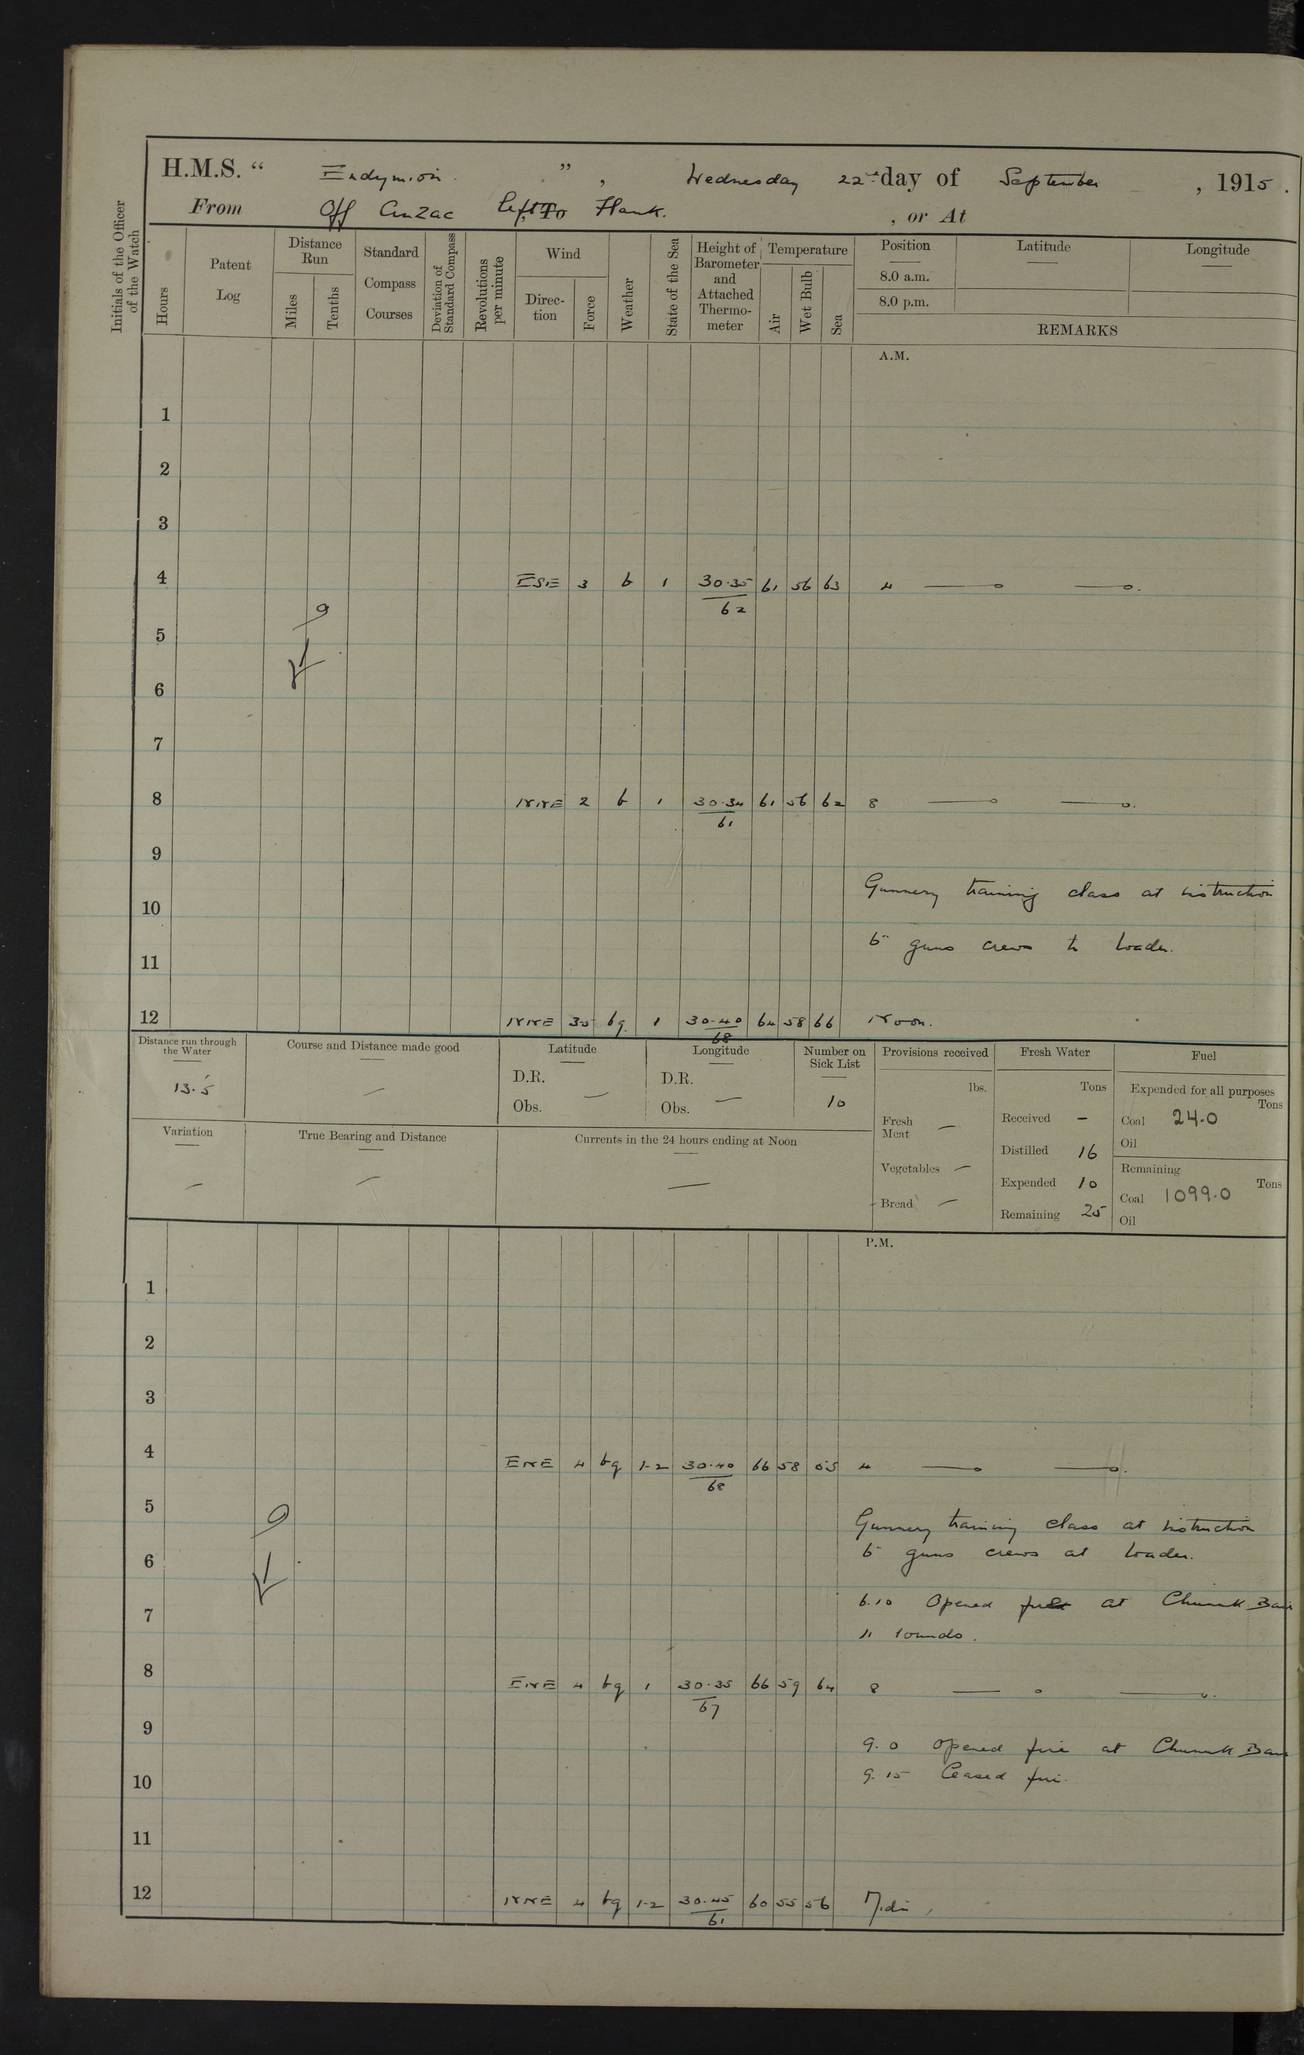 H.M.S. “ Endymion ” , Wednesday 22nd day of September , 1915 .
From Off Anzac left To Flank. , or At
Initials of the Officer of the Watch
Hours
Patent Log
Distance Run
Miles
Tenths
Standard Compass Courses
Deviation of Standard Compass
Revolutions per minute
Wind
Direc-tion
Force
Weather
State of the Sea
Height of Barometer and Attached Thermo-meter
Temperature
Air
Wet Bulb
Sea
Position Latitude Longitude
8.0 a.m.
8.0 p.m.
REMARKS
A.M.
1
2
3
4 ESE 3 b 1 30.35 61 56 63 4
62
5
6
7
8 NNE 2 b 1 30.34 61 56 62 8
61
9
Gunnery training class at instruction
10
6" guns crews to loader.
11
12 NNE 35 bq 1 30.40 64 58 66 Noon.
68
Distance run through the Water
13.5
Course and Distance made good
—
Latitude
D.R.
Obs. —
Longitude
D.R.
Obs. —
Number on Sick List
10
Provisions received
lbs.
Fresh Meat —
Vegetables —
Bread —
Fresh Water
Tons
Received —
Distilled 16
Expended 10
Remaining 25
Fuel
Expended for all purposes
Tons
Coal 24.0
Oil
Remaining
Tons
Coal 1099.0
Oil
Variation
—
True Bearing and Distance
—
Currents in the 24 hours ending at Noon
—
P.M.
1
2
3
4 ENE 4 bq 1-2 30.40 66 58 65 4
68
5
Gunnery training class at instruction
6 6" guns crews at loader.
6.10 Opened fire at Chunuk Bair
7
11 rounds.
8 ENE 4 bq 1 30.35 66 59 64 8
67
9
9.0 Opened fire at Chunuk Bair
9.15 Ceased fire.
10
11
12 NNE 4 bq 1-2 30.45 60 55 56 Midt.
61